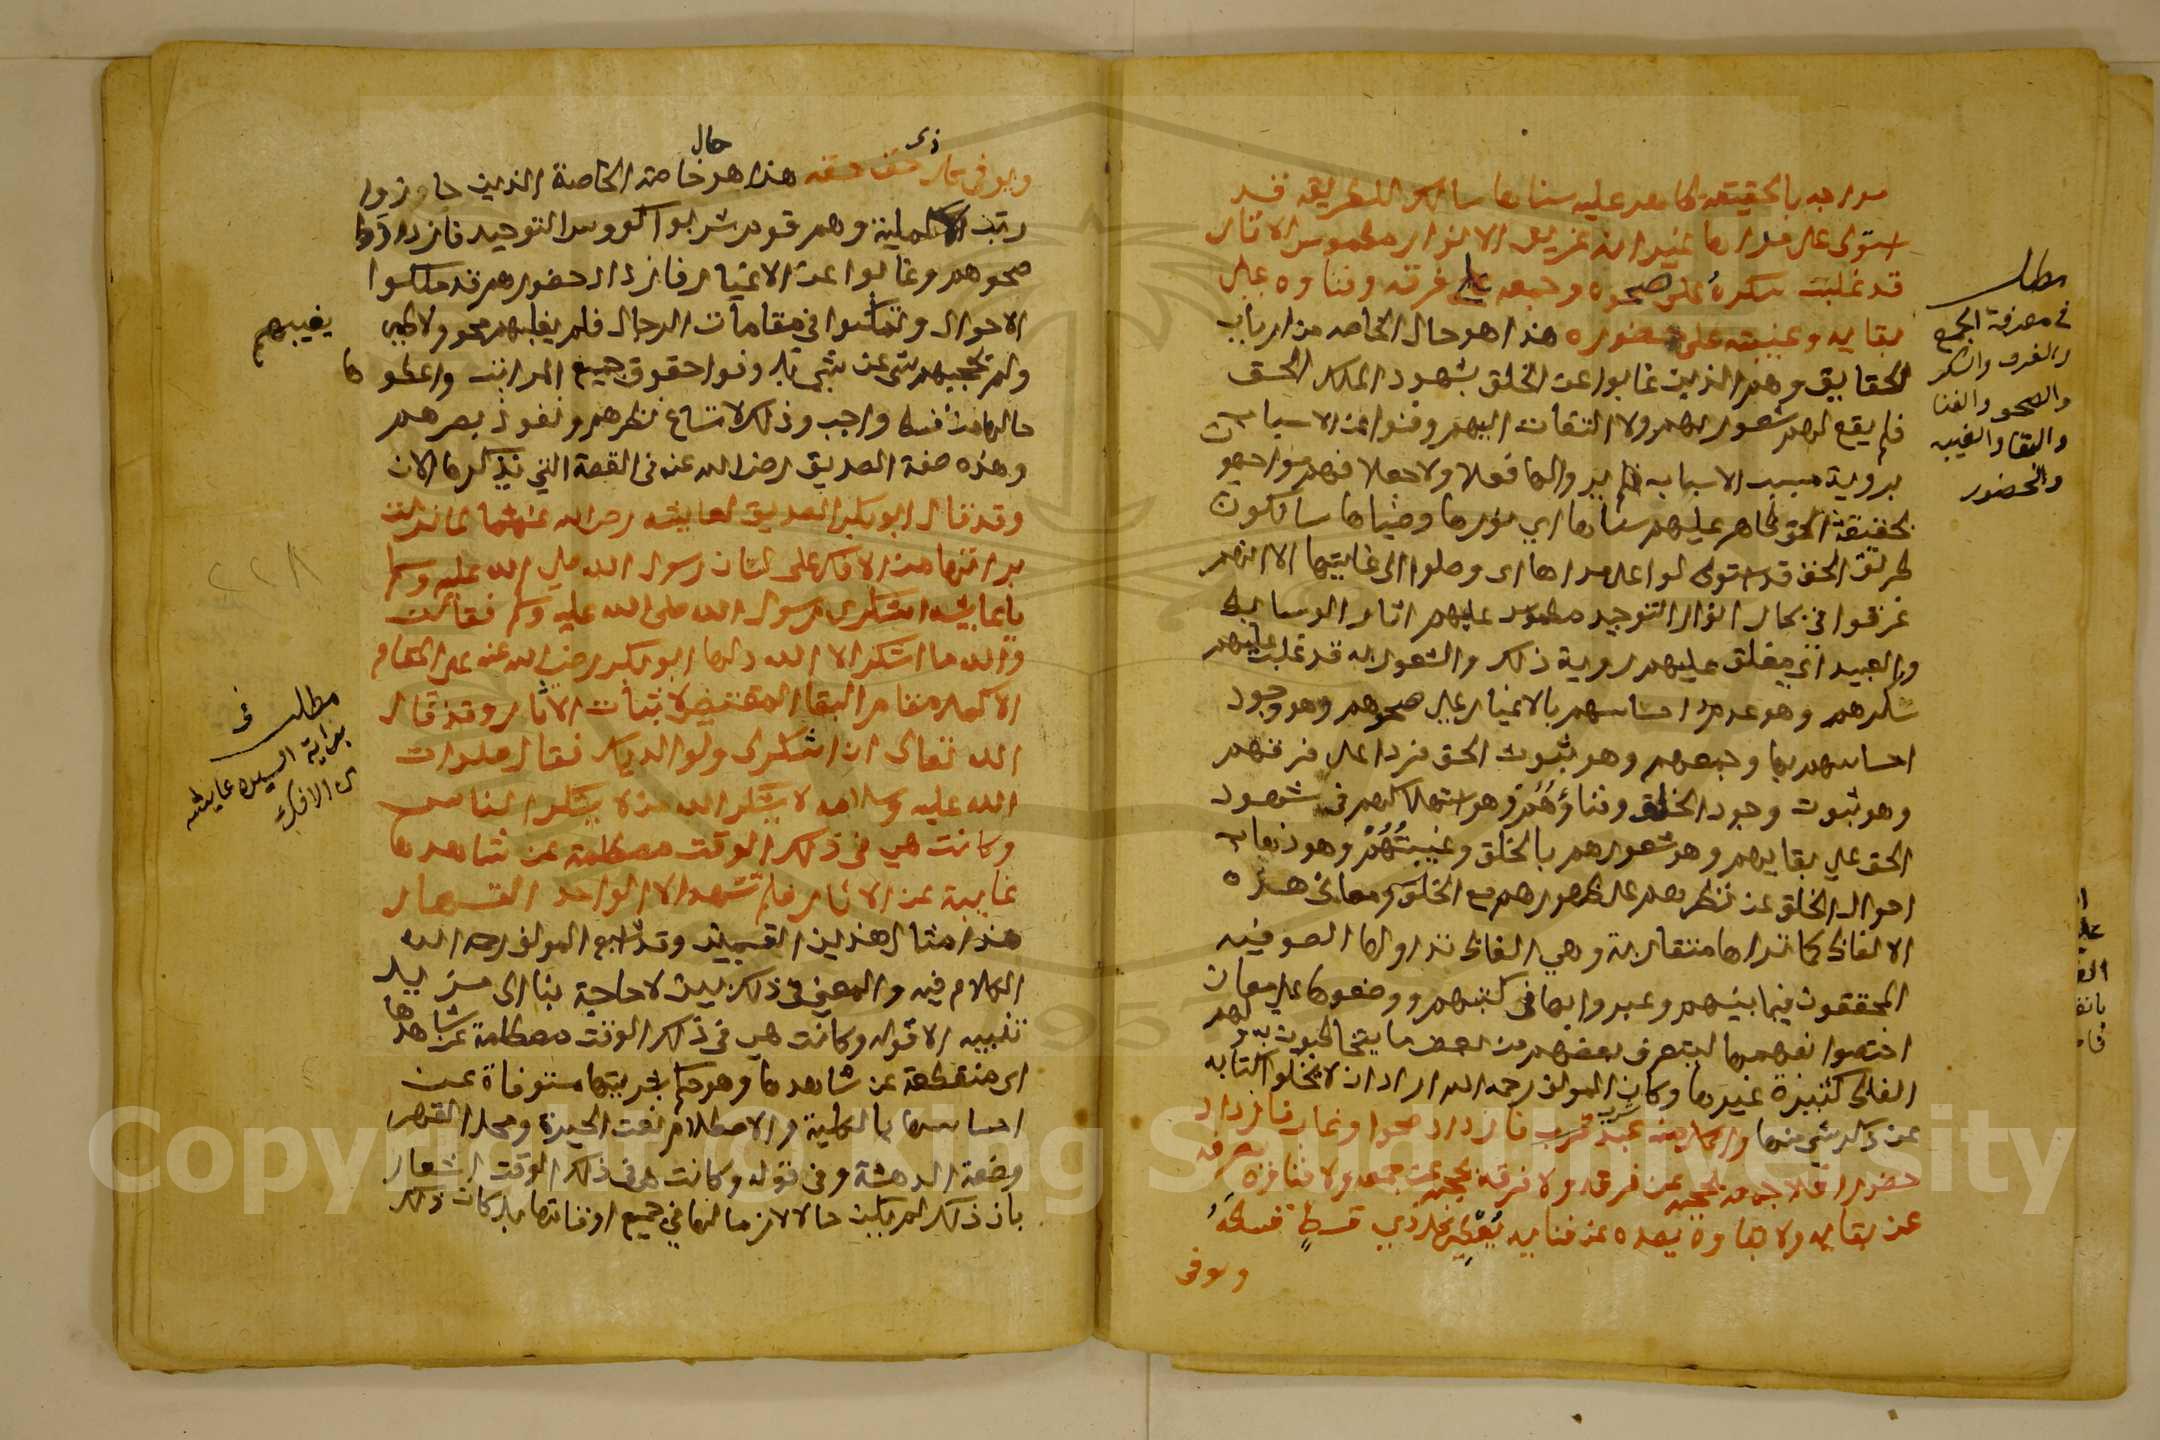 مواجه بالحقيقة ظاهر عليه سناها سالك للطريقة قد
استولى على مداها غير انه غريق الانوار مطموس الاثار
قد غلبت سكره على صحوه وجمعه على فرقه وفناوه على
بقايه وغيبته على حضوره هذا هو حال الخاصه من ارباب
الحقايق وهم الذين غابوا عن الخلق بشهود الملك الحق
فلم يقع لهم شعور بهم ولا التفات اليهم وفنوا عن الاسباب
بروية مسبب الاسباب فلم يروا لها فعلا ولا جعلا فهم مواجهون
بحقيقة الحق ظاهر عليهم سناها اي نورها وضياها سالكون
طريق الحق قد استولوا على مداها اي وصلوا الى غايتها الا انهم
غرقوا في بحار انوار التوحيد مطموس عليهم اثار الوسايط
والعبيد اي مغلق عليهم روية ذلك والشعور به قد غلب عليهم
سكرهم وهو عدم احساسهم بالاغيار على صحوهم وهو وجود
احساسهم بها وجمعهم وهو ثبوت الحق فردا على فرقهم
وهو ثبوت وجود الخلق وفناؤهم وهو استهلاكهم في شهود
الحق على بقايهم وهو شعورهم بالخلق وغيبتهم وهو ذهاب
احوال الخلق عن نظرهم على حضورهم مع الخلق ومعاني هذه
الالفاظ كما تراها متقاربة وهي الفاظ تداولها الصوفيه
المحققون فيما بينهم وعبروا بها في كتبهم ووضعوها على معان
اختصوا بفهمها ليتعرف بعضهم من بعض ما يتخاطبون به ولهم
الفاظ كثيرة غيرها وكان المولف رحمه الله اراد ان لا يخلو كتابه
عن ذكر شي منها واكمل منه عبد شرب فازداد صحوا وغاب فازداد
حضورا فلا جمعه يحجبه عن فرقه ولا فرقه يحجبه عن جمعه ولا فناوه يصرفه
عن بقايه ولا بقاوه يصده عن فنايه يعطي كل ذي قسط قسطه
ويوفي
مطلب
في معرفة الجمع
والفرق والسكر
والصحو والفنا
والبقا والغيبه
والحضور
ويوفي كل ذي حق حقه هذا هو حال خاصة الخاصة الذين جاوزوا
رتب الكاملية وهم قوم شربوا كووس التوحيد فازدادوا
صحوهم وغابوا عن الاغيار فازداد حضورهم قد ملكوا
الاحوال وتمكنوا في مقامات الرجال فلم يغلبهم محو ولا
يغيبهم
ولم يحجبهم شي عن شي بل وفوا حقوق جميع المراتب واعطوا
حالها من قسط واجب وذلك لاتساع نظرهم ونفوذ بصرهم
وهذه صفة الصديق رضي الله عنه في القصة التي نذكرها الان
وقد قال ابو بكر الصديق لعايشه رضي الله عنهما لما نزلت
براتها من الافك على لسان رسول الله صلى الله عليه وسلم
ياعايشه اشكري رسول الله صلى الله عليه وسلم فقالت
والله ما اشكر الا الله دلها ابو بكر رضي الله عنه على المقام
الاكمل مقام البقا المقتضي لاثبات الاثار وقد قال
الله تعالى ان اشكر لي ولوالديك فقال صلوات
الله عليه وسلامه لا يشكر الله من لا يشكر الناس
وكانت هي في ذلك الوقت مصطلمة عن شاهدها
غايبة عن الاثار فلم تشهد الا الواحد القهار
هذا مثال هذين القسمين وقد اشبع المولف رحمه الله
الكلام فيه والمعنى في ذلك بين لا حاجة بنا الى مزيد
تنبيه الا قوله وكانت هي في ذلك الوقت مصطلمة عن شاهدها
اي منقطعة عن شاهدها وهو حكم بشريتها مستوفاة عن
احساسها بالكلية والاصطلام نعت الحيرة ومحل القهر
وصفة الدهشة وفي قوله وكانت هي في ذلك الوقت اشعار
بان ذلك لم يكن حالا لازما لها في جميع اوقاتها بل كان ذلك
مطلب في
براية السيده عايشه
من الافك